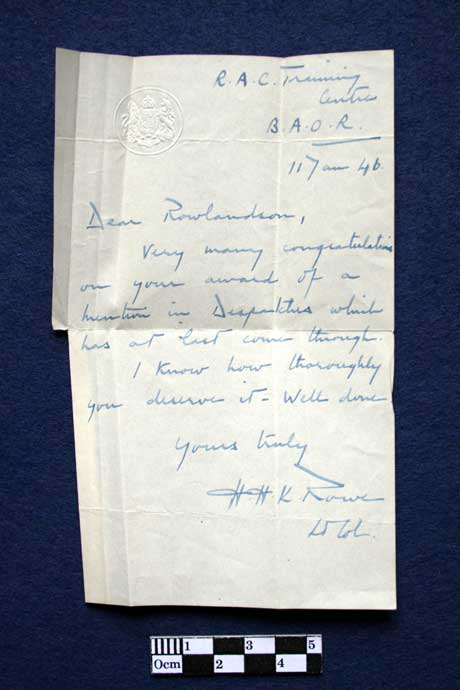 R.A.C. Training
Centre
B.A.O.R.
11 Jan 46.
Dear Rowlandson,
Very many congratulations
on your award of a
mention in Despatches which
has at last come through.
I know how thoroughly
you deserve it - Well done
Yours truly
H H K Rowe
Lt Col.
1 3 5
0cm 2 4